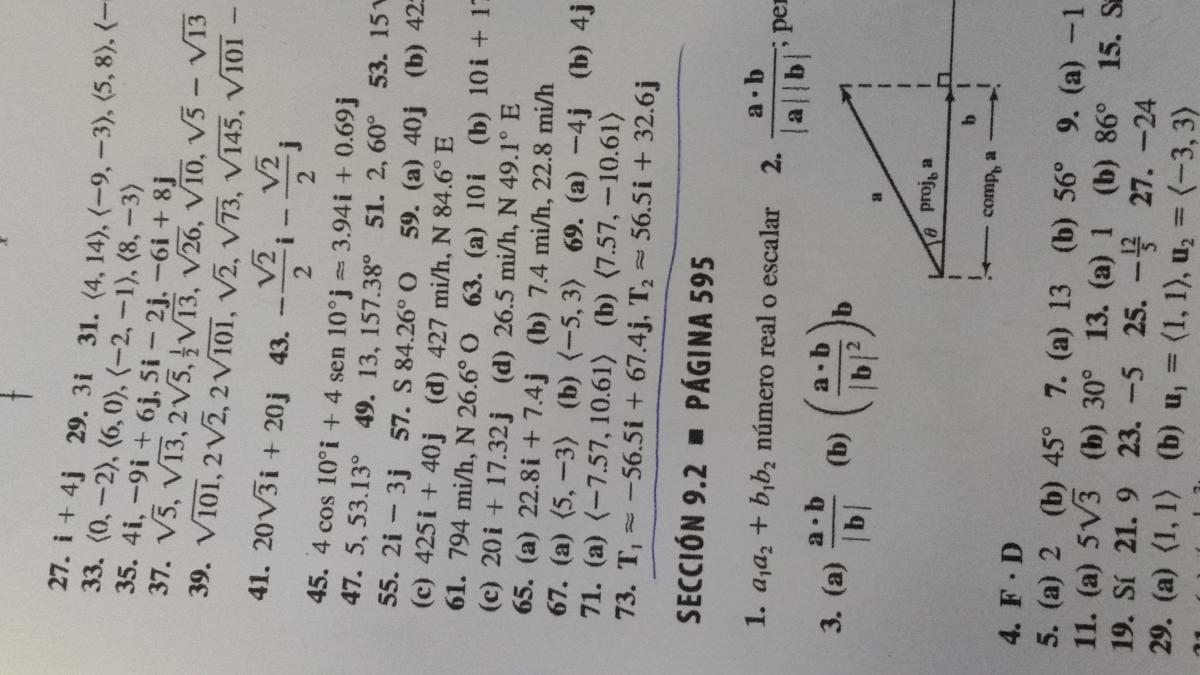 27. i + 4j 29. 3i 31. ⟨4, 14⟩, ⟨−9, −3⟩, ⟨5, 8⟩, ⟨−
33. ⟨0, −2⟩, ⟨6, 0⟩, ⟨−2, −1⟩, ⟨8, −3⟩
35. 4i, −9i + 6j, 5i − 2j, −6i + 8j
37. √5, √13, 2√5, ½√13, √26, √10, √5 − √13
39. √101, 2√2, 2√101, √2, √73, √145, √101 −
41. 20√3i + 20j 43. −√2/2 i − √2/2 j
45. 4 cos 10°i + 4 sen 10°j ≈ 3.94i + 0.69j
47. 5, 53.13° 49. 13, 157.38° 51. 2, 60° 53. 15√
55. 2i − 3j 57. S 84.26° O 59. (a) 40j (b) 425
(c) 425i + 40j (d) 427 mi/h, N 84.6° E
61. 794 mi/h, N 26.6° O 63. (a) 10i (b) 10i + 17
(c) 20i + 17.32j (d) 26.5 mi/h, N 49.1° E
65. (a) 22.8i + 7.4j (b) 7.4 mi/h, 22.8 mi/h
67. (a) ⟨5, −3⟩ (b) ⟨−5, 3⟩ 69. (a) −4j (b) 4j
71. (a) ⟨−7.57, 10.61⟩ (b) ⟨7.57, −10.61⟩
73. T₁ ≈ −56.5i + 67.4j, T₂ ≈ 56.5i + 32.6j
SECCIÓN 9.2 ■ PÁGINA 595
1. a₁a₂ + b₁b₂ número real o escalar 2. a · b / |a||b|; per
3. (a) a · b / |b| (b) (a · b / |b|²)b
a
θ
proj_b a
b
comp_b a
4. F · D
5. (a) 2 (b) 45° 7. (a) 13 (b) 56° 9. (a) −1
11. (a) 5√3 (b) 30° 13. (a) 1 (b) 86° 15. Sí
19. Sí 21. 9 23. −5 25. −12/5 27. −24
29. (a) ⟨1, 1⟩ (b) u₁ = ⟨1, 1⟩, u₂ = ⟨−3, 3⟩